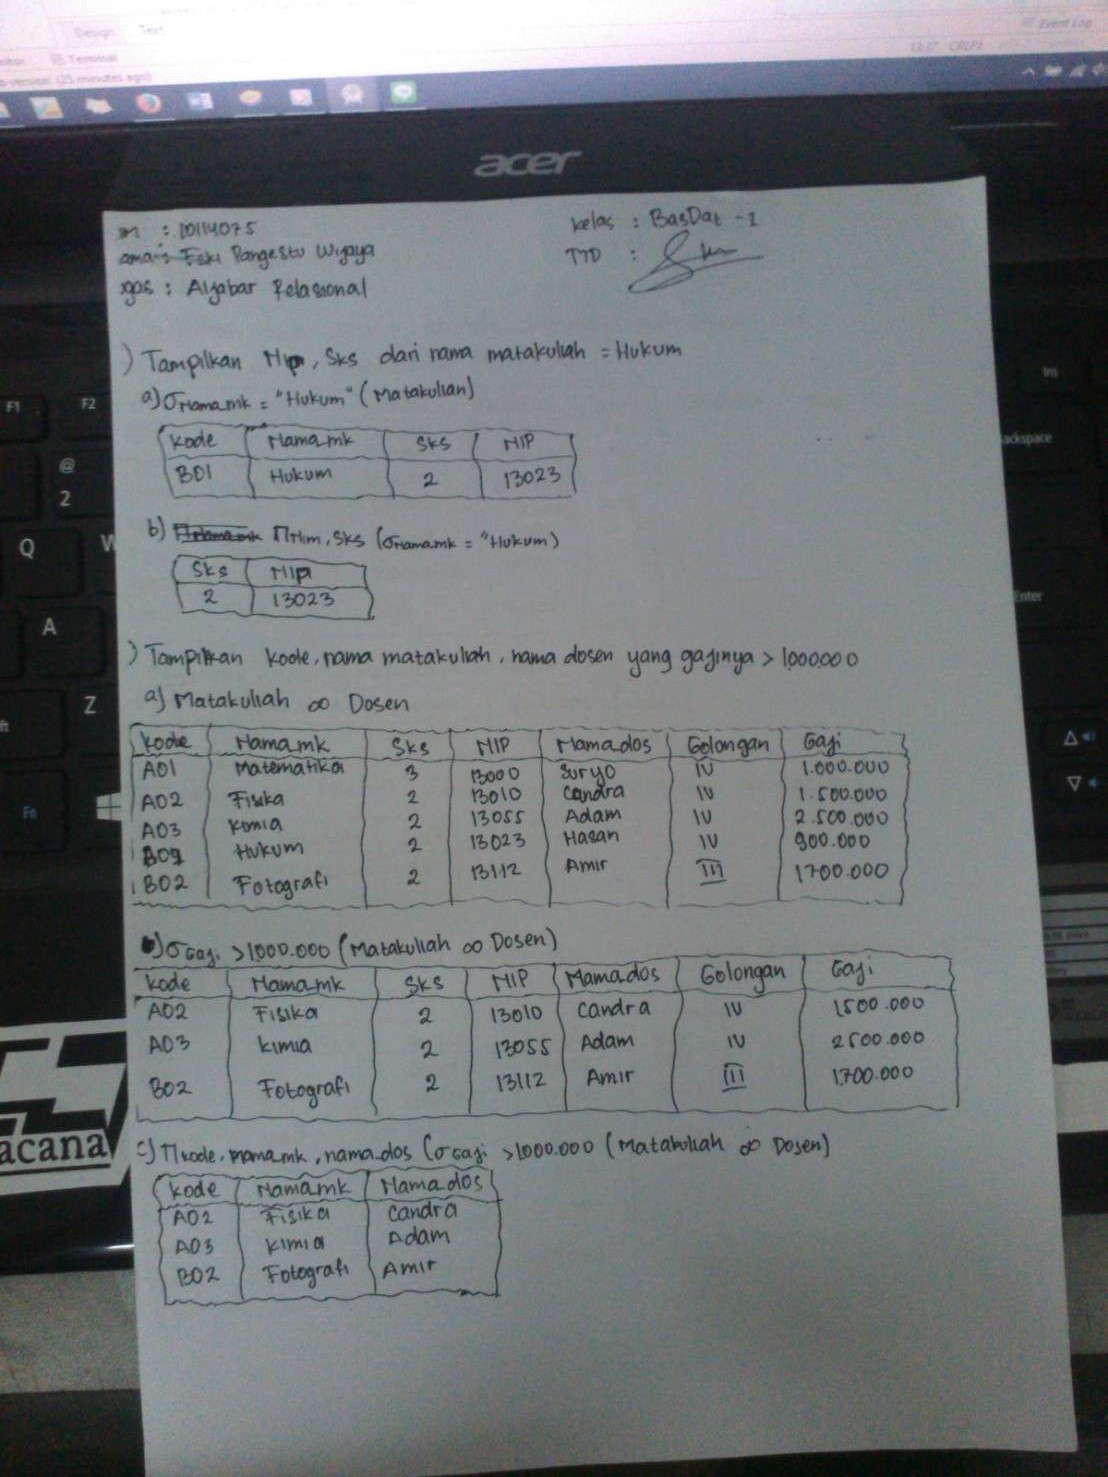 Design Text
Event Log
Terminal
version (25 minutes ago)
12:37 CRLF‡
acer
m : 10114075
ama : Pangestu Wijaya
gas : Aljabar Relasional
Kelas : BasDat - 1
TTD :
) Tampilkan Nip, Sks dari nama matakuliah = Hukum
a) σNama.mk = "Hukum" (Matakuliah)
Kode Nama.mk Sks NIP
B01 Hukum 2 13023
b) ΠNim, Sks (σNama.mk = "Hukum)
Sks Nip
2 13023
) Tampilkan kode, nama matakuliah, nama dosen yang gajinya > 1.000.000
a) Matakuliah ∞ Dosen
Kode Nama.mk Sks NIP Nama.dos Golongan Gaji
A01 Matematika 3 13000 Suryo IV 1.000.000
A02 Fisika 2 13010 Candra IV 1.500.000
A03 Kimia 2 13055 Adam IV 2.500.000
Hukum 2 13023 Hasan IV 900.000
B02 Fotografi 2 13112 Amir III 1700.000
b) σGaji > 1000.000 (Matakuliah ∞ Dosen)
Kode Nama.mk Sks NIP Nama.dos Golongan Gaji
A02 Fisika 2 13010 Candra IV 1500.000
A03 Kimia 2 13055 Adam IV 2500.000
B02 Fotografi 2 13112 Amir III 1.700.000
c) Πkode, nama.mk, nama.dos (σGaji > 1000.000 (Matakuliah ∞ Dosen)
Kode Nama.mk Nama.dos
A02 Fisika Candra
A03 Kimia Adam
B02 Fotografi Amir
F1 F2
@
2
Q W
A
Z
Fn
Ins
ackspace
Enter
acana